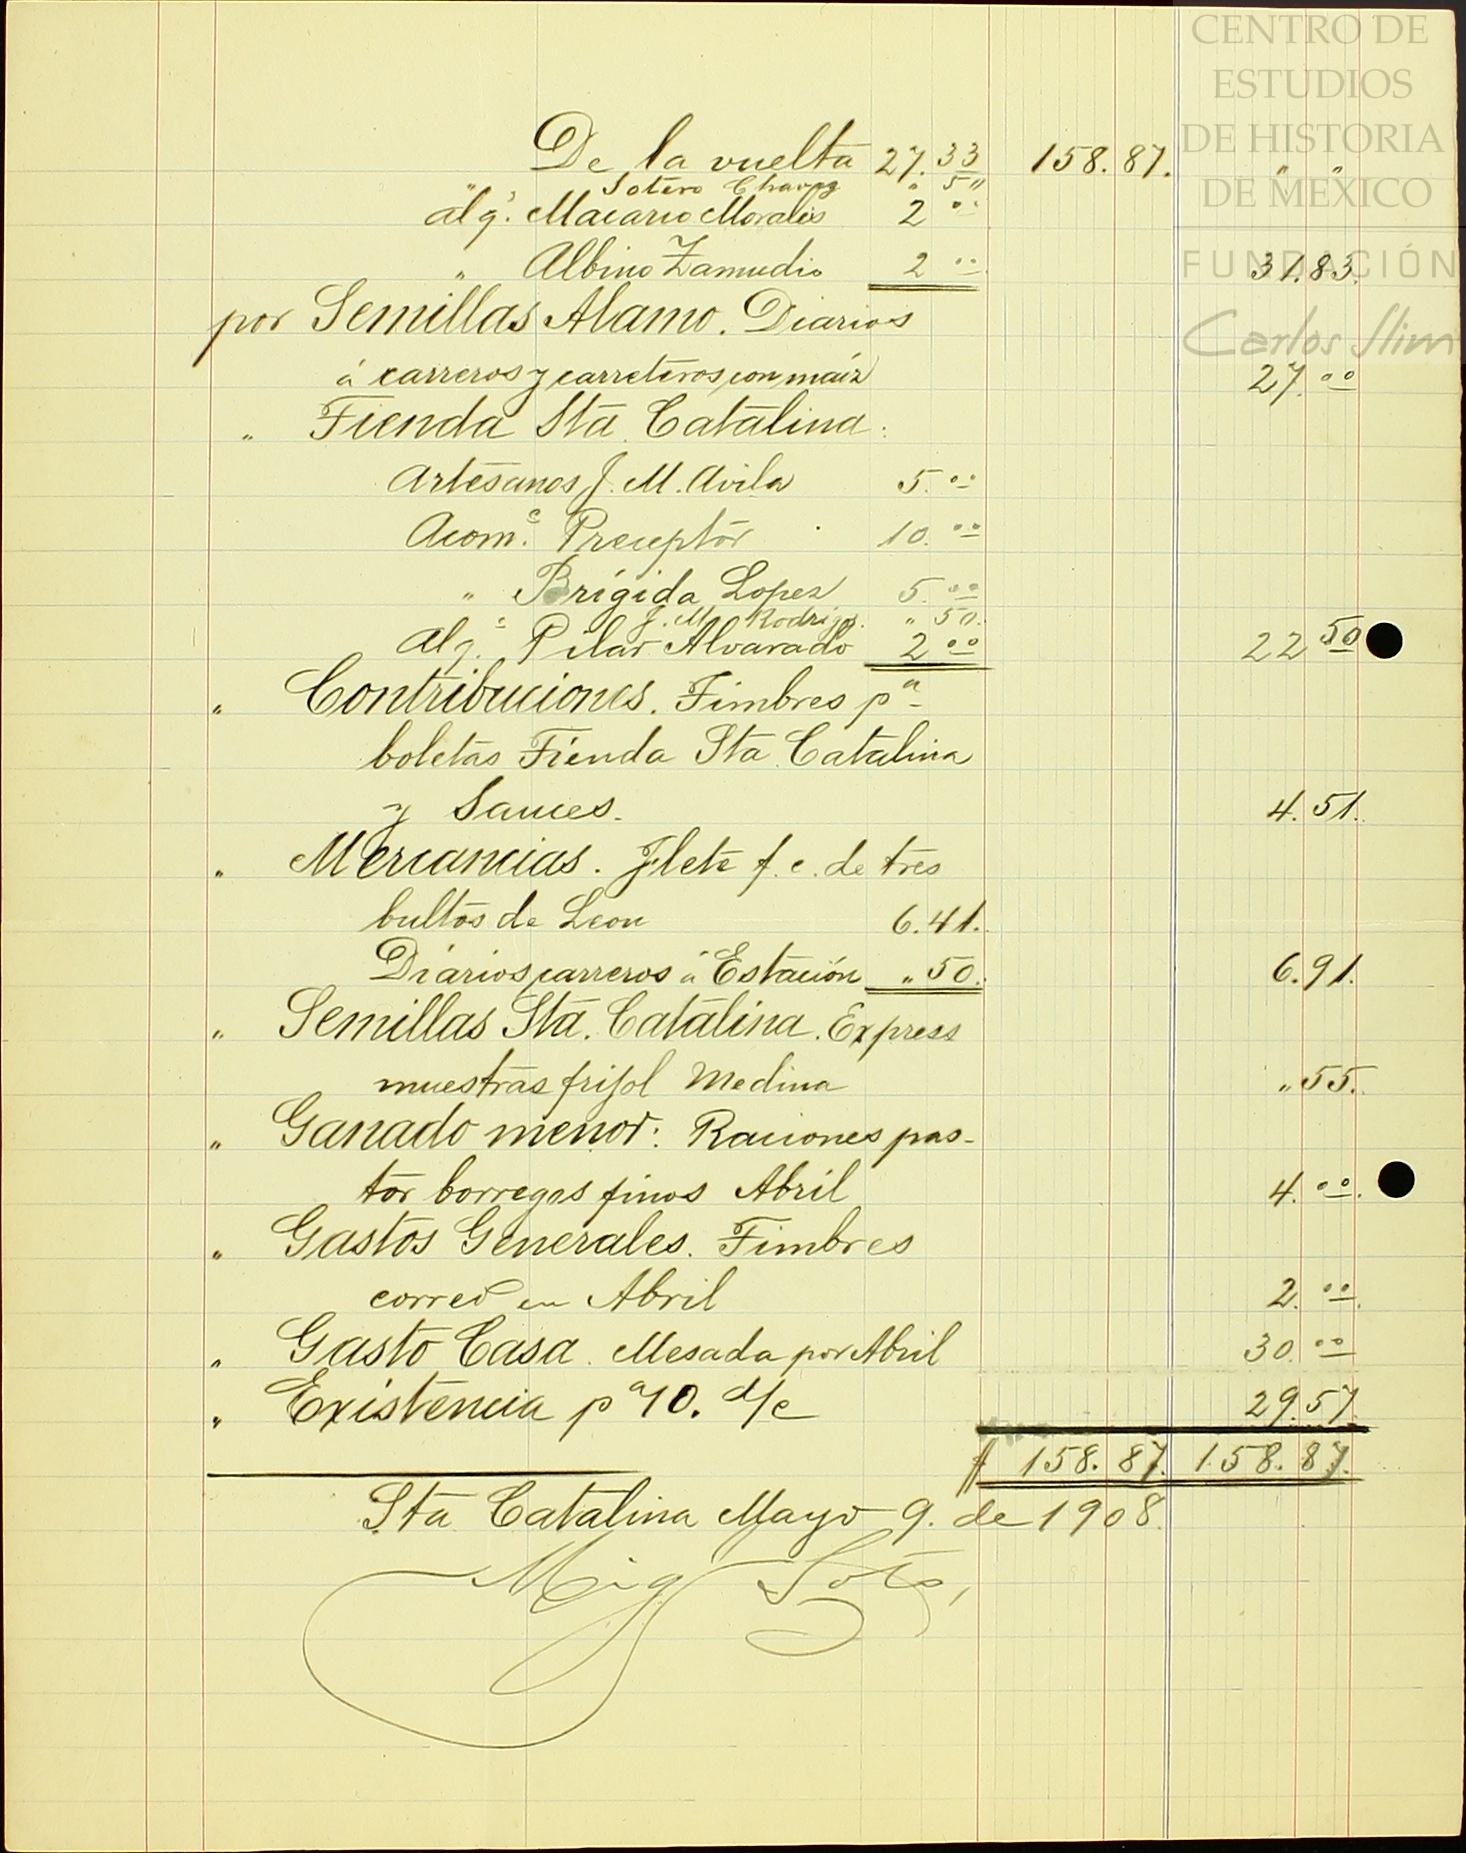 CENTRO DE
ESTUDIOS
DE HISTORIA
DE MÉXICO
FUNDACIÓN
Carlos Slim
De la vuelta 27.33 158.87. " "
" Sotero Chavez " 50
Alq.^s Macario Morales 2 00
" Albino Zamudio 2 00 31.83.
por Semillas Alamo. Diarios
á carreros y carreteros con maíz 27.00
" Tienda Sta Catalina.
Artesanos J. M. Avila 5.00
Acom.^s Preceptor 10.00
" Brígida Lopez 5.00
" J. M. Rodrigz. " 50.
Alq.^s Pilar Alvarado 2 00 22 50
" Contribuciones. Timbres p^a
boletas Tienda Sta Catalina
y Sauces. 4.51.
" Mercancias. Flete f. c. de tres
bultos de Leon 6.41.
Diarios carreros á Estación " 50. 6.91.
" Semillas Sta. Catalina. Express
muestras frijol Medina " 55.
" Ganado menor: Raciones pas-
tor borregos finos Abril 4.00.
" Gastos Generales. Timbres
correo en Abril 2.00.
" Gasto Casa. Mesada por Abril 30.00
" Existencia p^a 10. d/c 29.57
$ 158.87. 158.87.
Sta Catalina Mayo 9. de 1908.
Mig Soto,